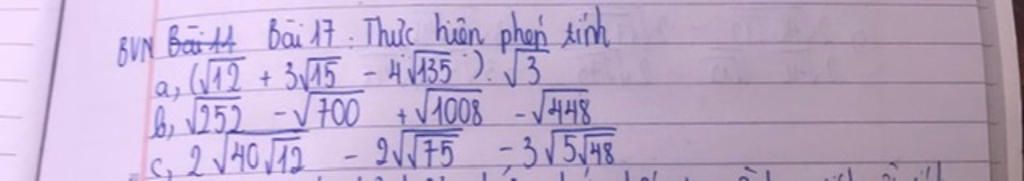 BVN Bài 17 : Thực hiện phép tính
a, (√12 + 3√15 - 4√135) . √3
b, √252 - √700 + √1008 - √448
c, 2√40√12 - 2√√75 - 3√5√48